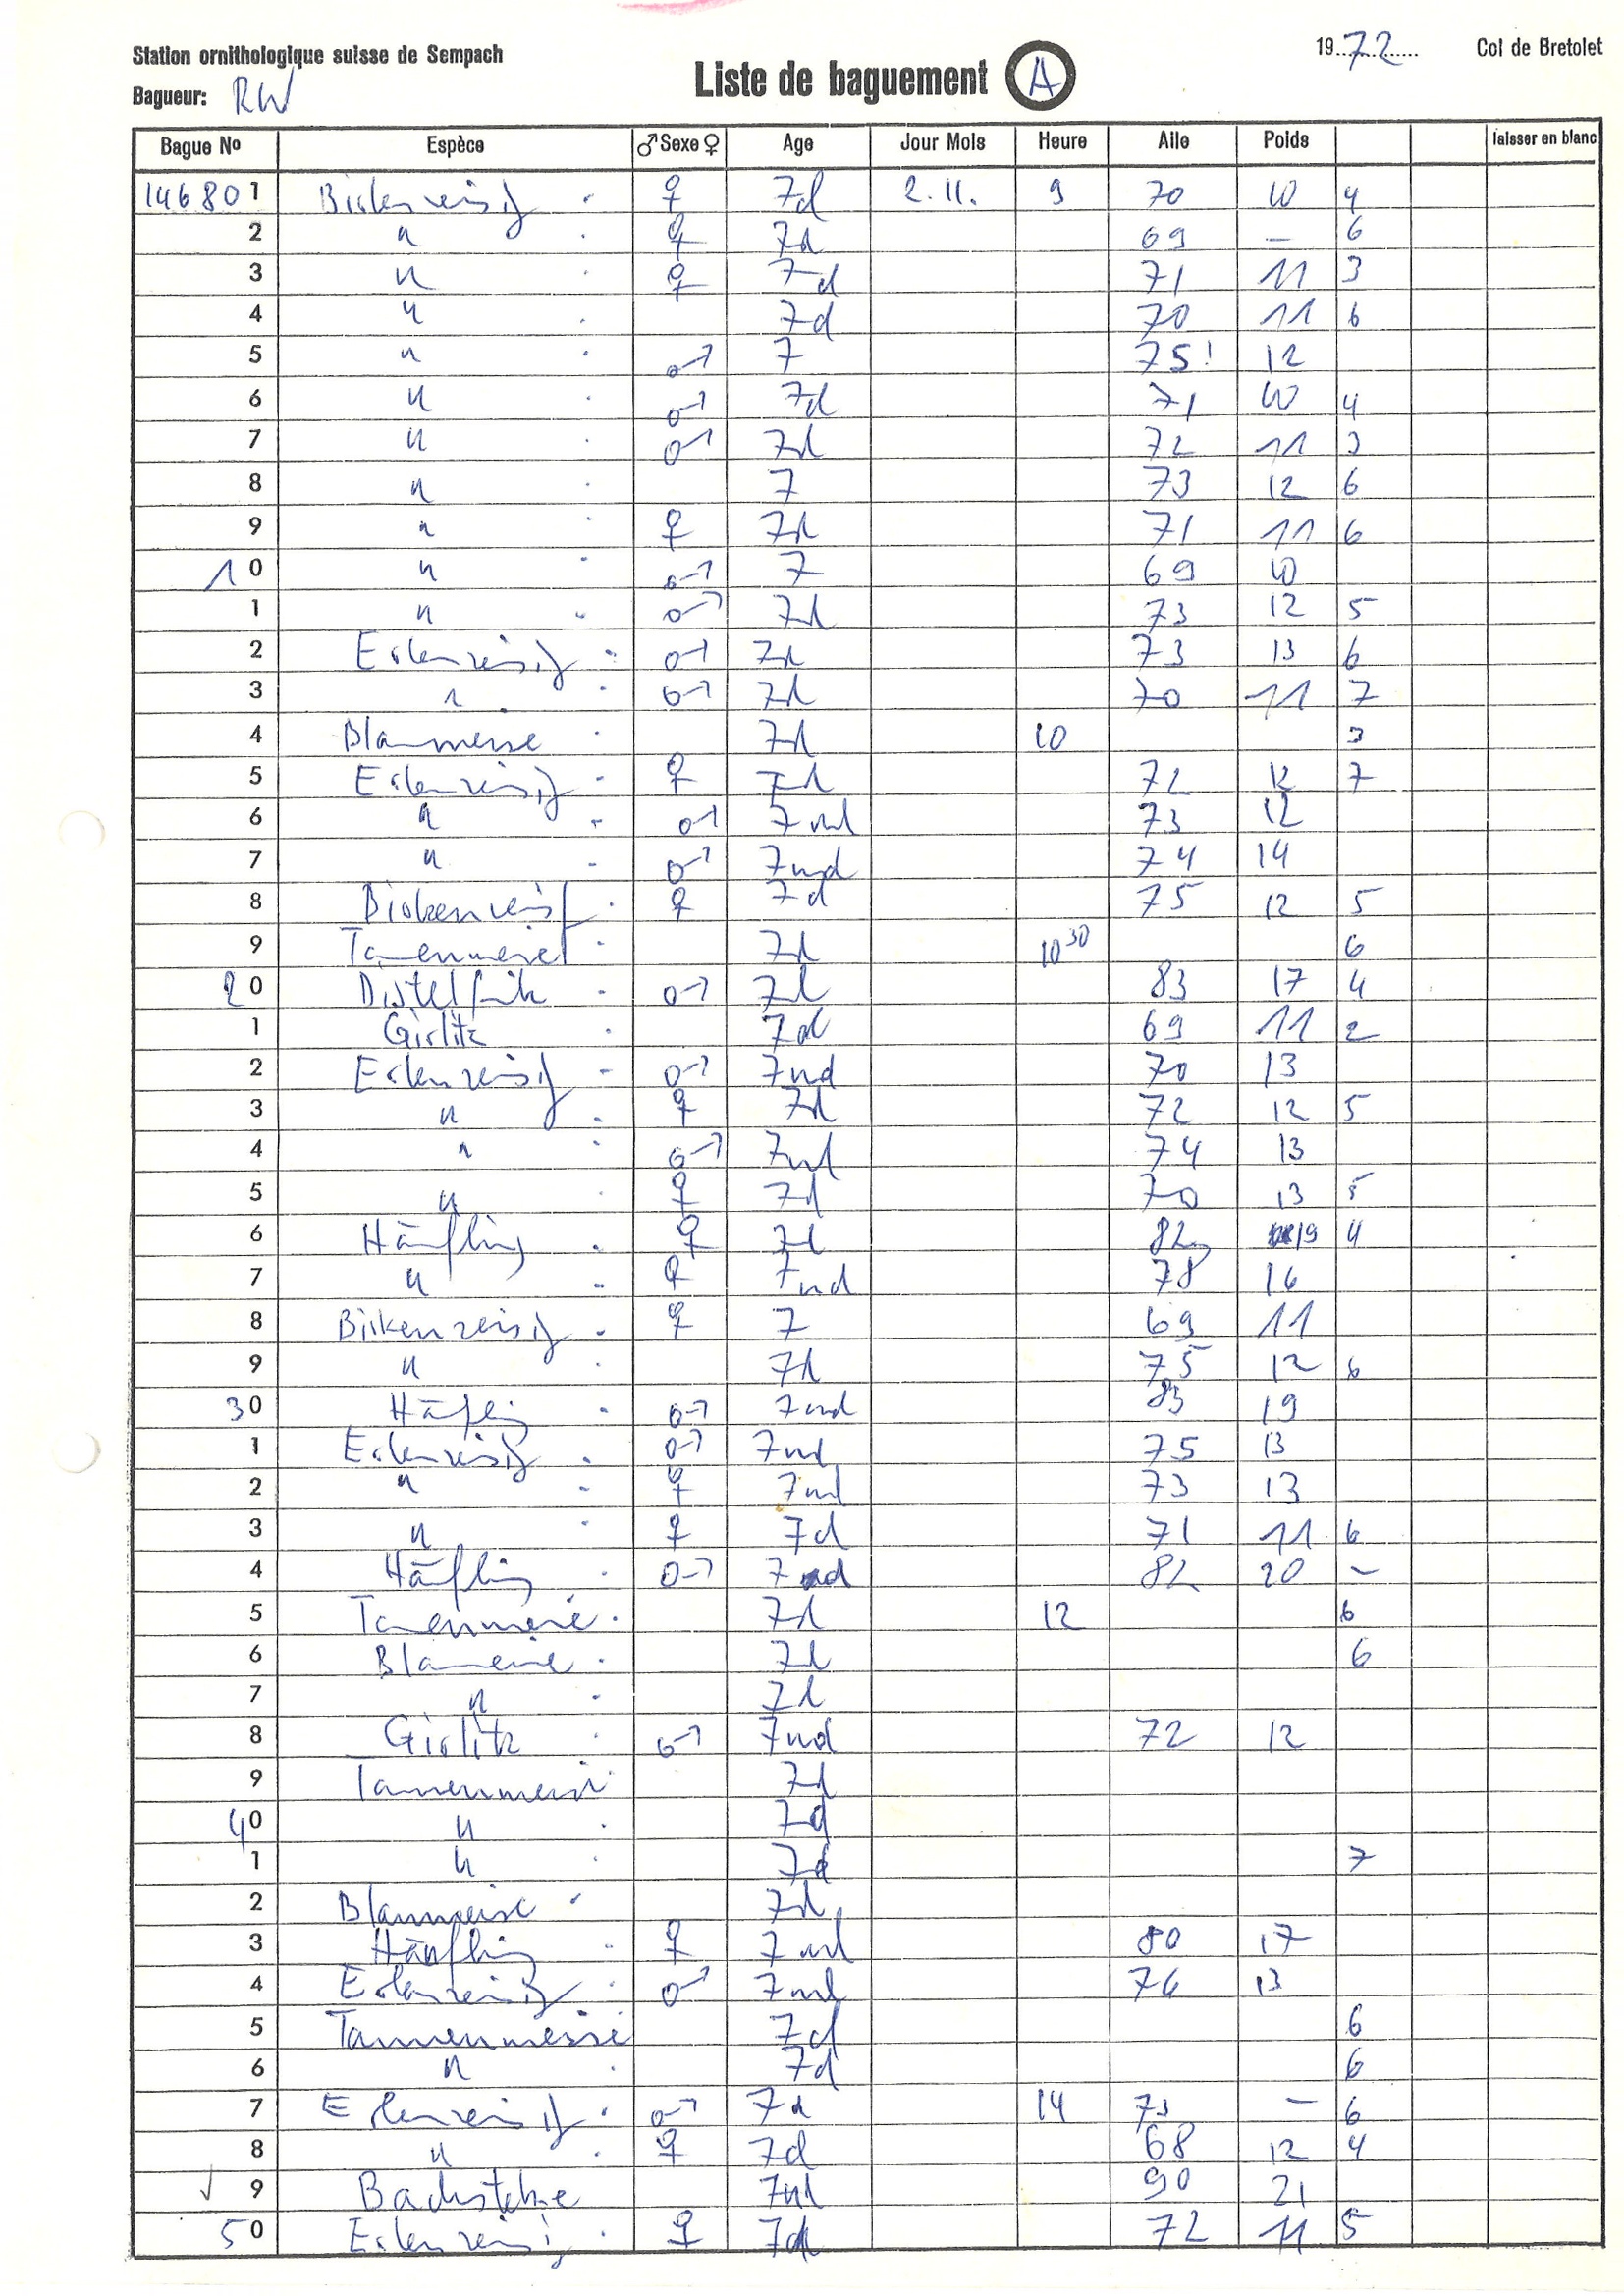 Station ornithologique suisse de Sempach
Bagueur: RW
Liste de baguement A
1972 Col de Bretolet
Bague No Espèce ♂ Sexe ♀ Age Jour Mois Heure Aile Poids laisser en blanc
146801 Birkenzeisig ♀ 7d 2.11. 9 70 10 4
2 " ♀ 7d 69 – 6
3 " ♀ 7d 71 11 3
4 " 7d 70 11 6
5 " ♂ 7 75! 12
6 " ♂ 7d 71 10 4
7 " ♂ 7d 72 11 3
8 " 7 73 12 6
9 " ♀ 7d 71 11 6
10 " ♂ 7 69 10
1 " ♂ 7d 73 12 5
2 Erlenzeisig ♂ 7d 73 13 6
3 " ♂ 7d 70 11 7
4 Blaumeise 7d 10 3
5 Erlenzeisig ♀ 7d 72 12 7
6 " ♂ 7nd 73 12
7 " ♂ 7nd 74 14
8 Birkenzeisig ♀ 7d 75 12 5
9 Tannenmeise 7d 10 30 6
20 Distelfink ♂ 7d 83 17 4
1 Girlitz 7d 69 11 2
2 Erlenzeisig ♂ 7nd 70 13
3 " ♀ 7d 72 12 5
4 " ♂ 7nd 74 13
5 " ♀ 7d 70 13 5
6 Hänfling ♀ 7d 82 19 4
7 " ♀ 7nd 78 16
8 Birkenzeisig ♀ 7 69 11
9 " 7d 75 12 6
30 Hänfling ♂ 7nd 83 19
1 Erlenzeisig ♂ 7nd 75 13
2 " ♀ 7nd 73 13
3 " ♀ 7d 71 11 6
4 Hänfling ♂ 7nd 82 20 –
5 Tannenmeise 7d 12 6
6 Blaumeise 7d 6
7 " 7d
8 Girlitz ♂ 7nd 72 12
9 Tannenmeise 7d
40 " 7d
1 " 7d 7
2 Blaumeise 7d
3 Hänfling ♀ 7nd 80 17
4 Erlenzeisig ♂ 7nd 76 13
5 Tannenmeise 7d 6
6 " 7d 6
7 Erlenzeisig ♂ 7d 14 73 – 6
8 " ♀ 7d 68 12 4
✓ 9 Bachstelze 7nd 90 21
50 Erlenzeisig ♀ 7d 72 11 5